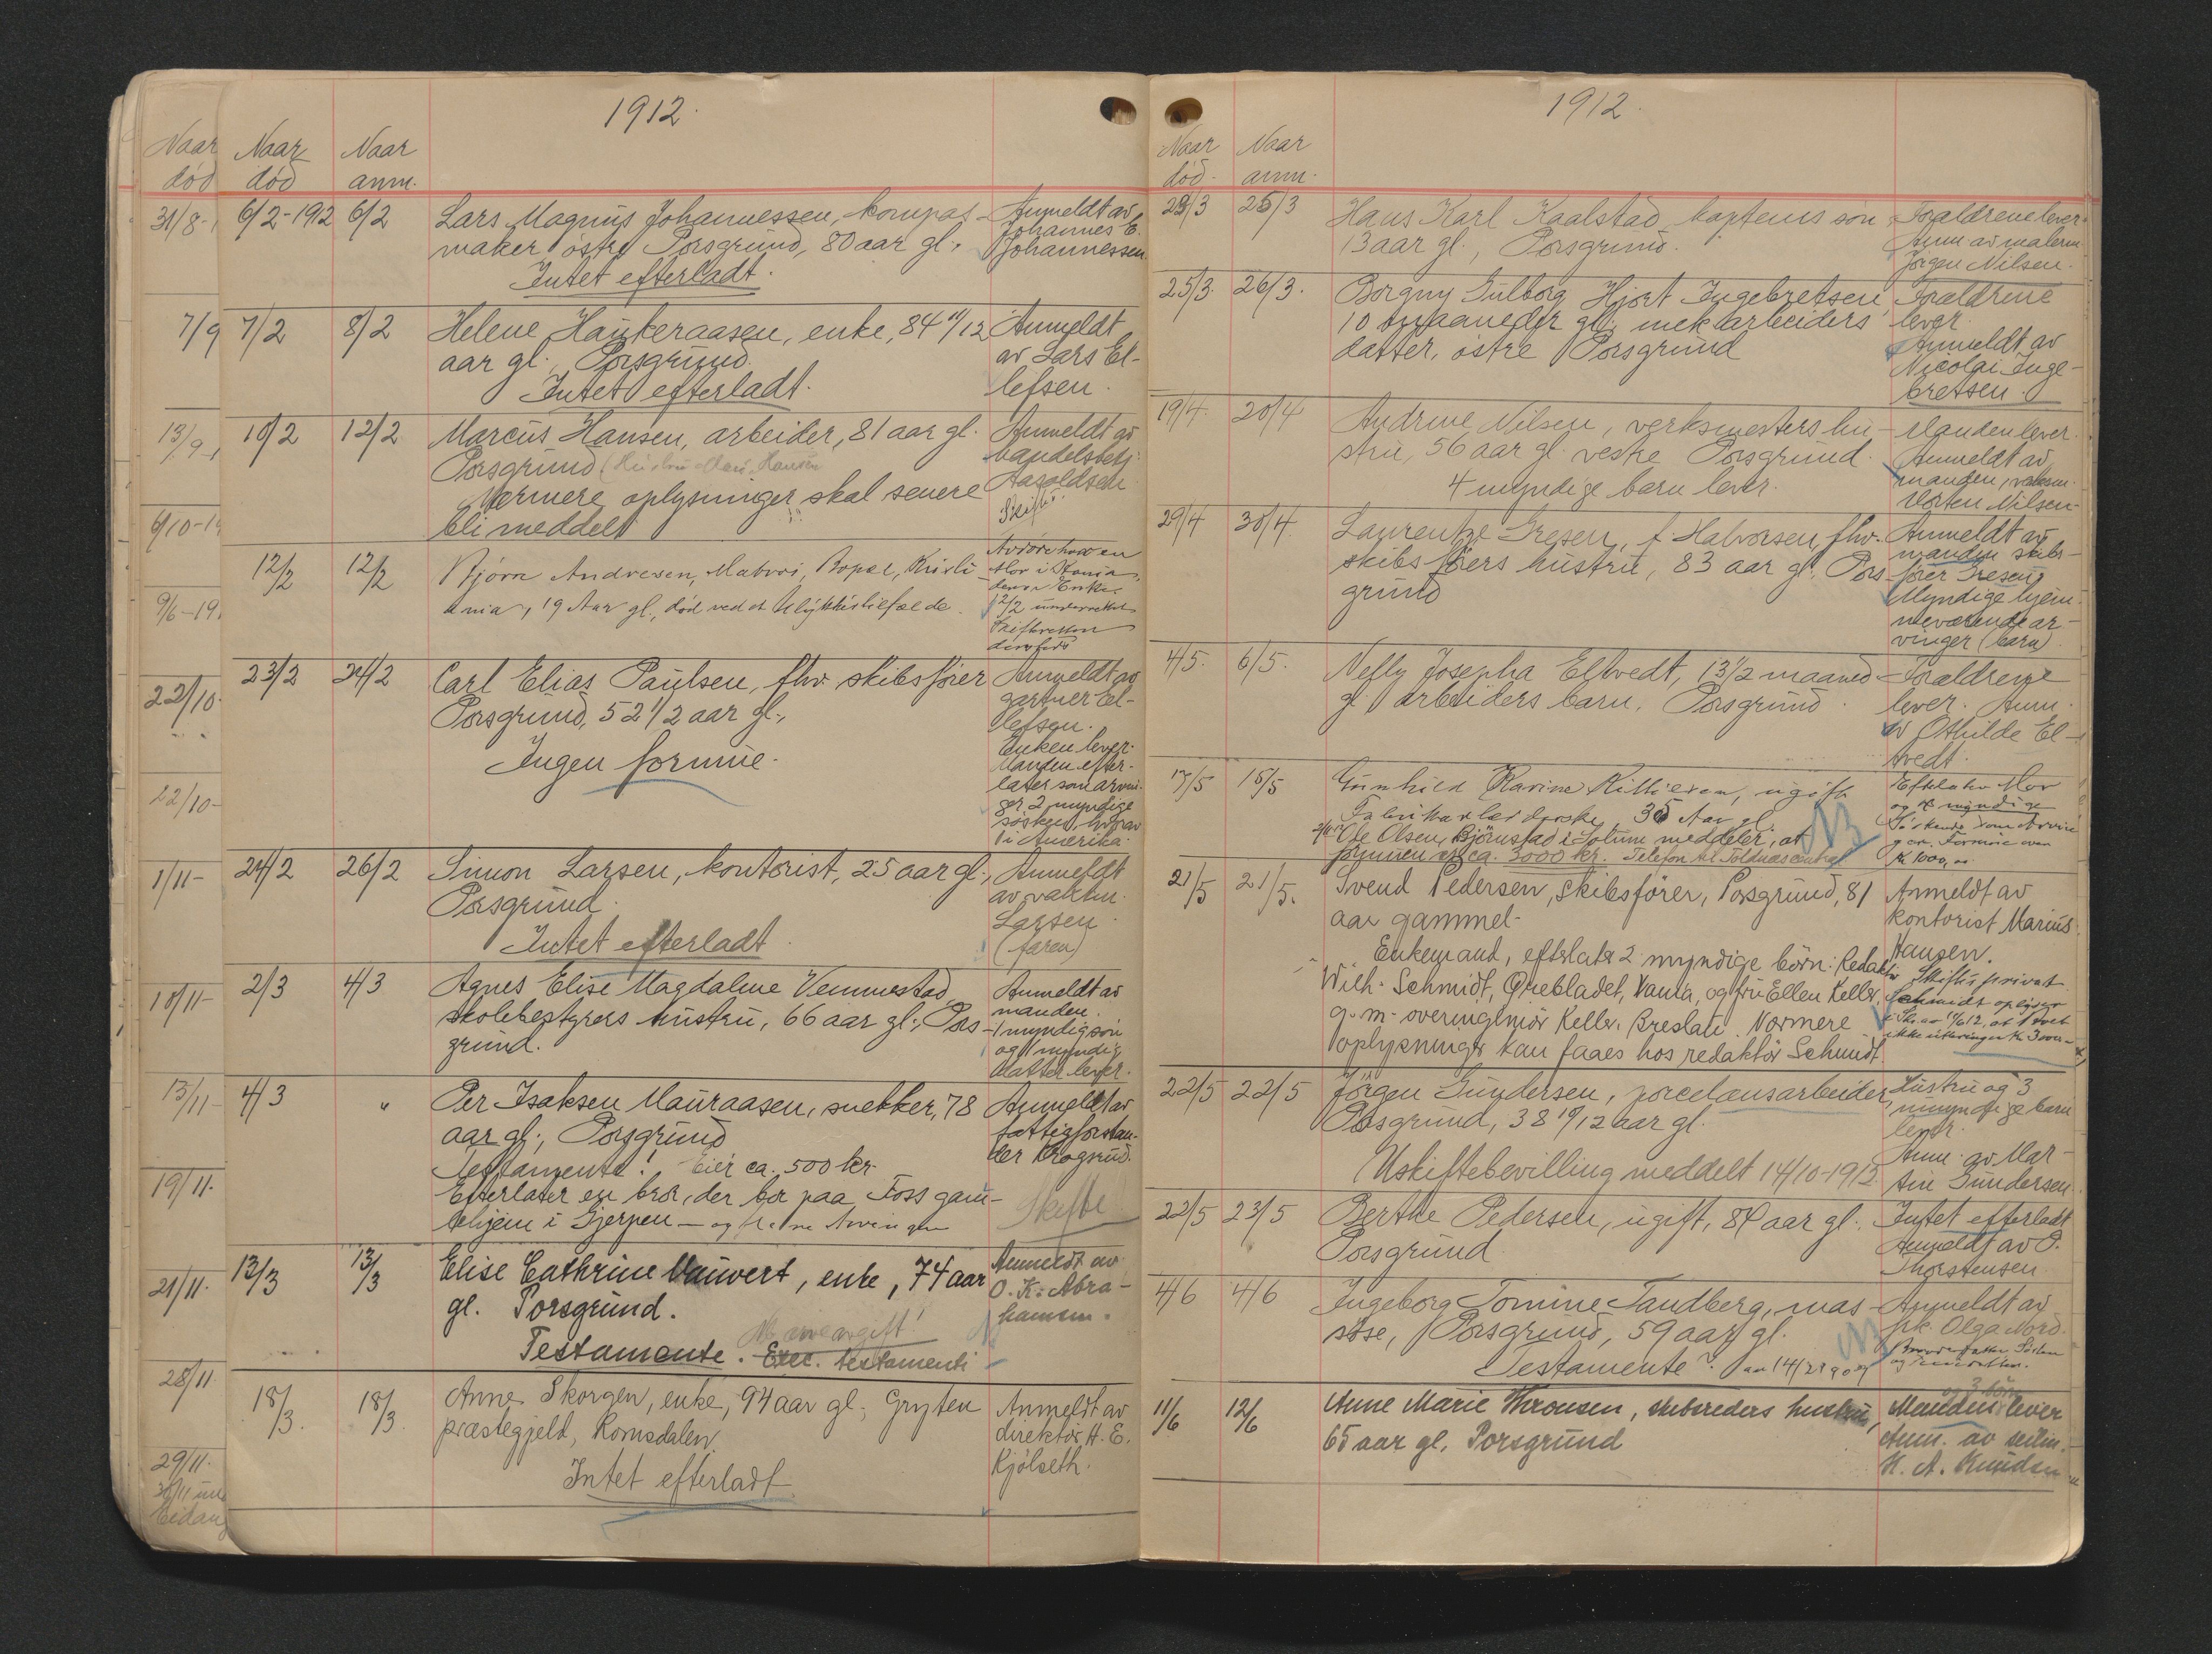 1912.
Naar død
Naar død
Naar anm.
31/8-1
6/2-1912
6/2
Lars Magnus Johannessen, kompas-
maker østre Porsgrund, 80 aar gl.
Intet efterladt.
Anmeldt av
Johannes E.
Johannessen
7/9
7/2
8/2
Helene Haukeraasen, enke, 84 11/12
aar gl., Porsgrund.
Intet efterladt.
Anmeldt
av Lars El-
lefsen.
13/9-1
10/2
12/2
Marcus Hansen, arbeider, 81 aar gl.
Porsgrund (Hustru Hansen
Nærmere oplysninger skal senere
bli meddelt
Anmeldt av
handelsbetj.
Aasoldsen
Skifte
6/10-19
12/2
12/2
Bjørn Andresen, Matros, Kristi-
ania, 19 Aar gl., død ved et Ulykkestilfælde.
Avdøde har en
Mor i Krania,
denne Enke.
12/2 underrettet
Skifteretten
dersteds
9/6-19
22/10.
23/2
24/2
Carl Elias Paulsen, fhv. skibsfører
Porsgrund, 52 1/2 aar gl.,
Ingen formue.
Anmeldt av
gartner El-
lefsen.
Enken lever.
Manden efter-
later som arvin-
ger 2 myndige
søsken, hvorav
1 i Amerika.
22/10-
1/11-
24/2
26/2
Simon Larsen, kontorist, 25 aar gl.,
Porsgrund.
Intet efterladt.
Anmeldt
av vaktm.
Larsen.
(faren)
10/11-
2/3
4/3
Agnes Elise Magdalene Vemmestad,
skolebestyrers hustru, 66 aar gl., Pors-
grund.
Anmeldt av
manden.
1 myndig søn
og 1 myndig
datter lever.
13/11-
4/3
"
Per Isaksen Mauraasen, snekker, 78
aar gl., Porsgrund
Testamente! Eier ca. 500 kr.
Efterlater en bror, der bor paa Foss gam-
lehjem i Gjerpen - og flere Arvinger
Anmeldt av
fattigforstan-
der Krogsrud.
Skifte
19/11.
21/11.
13/3
13/3
Elise Cathrine Vauvert, enke, 74 aar
gl. Porsgrund.
NB arveavgift!
Testamente. Exec. testamenti
Anmeldt av
O. K. Abra-
hamsen.
28/11
18/3.
18/3.
Anne Skorgen, enke, 94 aar gl., Gryten
præstegjeld, Romsdalen.
Intet efterladt.
Anmeldt av
direktør H. E.
Kjølseth.
29/11.
30/11
Eidang
1912.
Naar død.
Naar anm.
23/3
25/3
Hans Karl Kaalstad, kapteins søn
13 aar gl., Porsgrund.
Forældrene lever.
Anm. av malerm.
Jørgen Nilsen.
25/3.
26/3.
Borgny Gulborg Hjort Ingebretsen
10 maaneder gl., mek. arbeiders
datter, østre Porsgrund
Forældrene
lever.
Anmeldt av
Nicolai Inge-
bretsen.
19/4.
20/4
Andrine Nilsen, verksmesters hu-
stru, 56 aar gl. vestre Porsgrund.
4 myndige barn lever.
Manden lever.
Anmeldt av
manden, verksm.
Morten Nilsen.
29/4
30/4.
Laurentze Gresen, f. Halvorsen, fhv.
skibsførers hustru, 83 aar gl., Pors-
grund
Anmeldt av
manden skibs-
fører Gresen,
Myndige hjem-
meværende ar-
vinger (barn).
4/5.
6/5.
Nelly Josepha Eltvedt, 13 1/2 maaned
gl. arbeiders barn, Porsgrund.
Forældrene
lever. Anm.
av Othilde El-
tvedt.
15/5
Gunhild Karine Killiersen, ugift
Fabrikarbeiderske, 35 Aar gl.
Ole Olsen, Bjørnstad i Solum meddeler, at
formuen er ca. 3000 kr. Telefon
NB
Efterlater Mor
og 4 myndige
Søskende som Arvin-
ger. Formue over
Kr 1000,00
21/5
21/5.
Svend Pedersen, skibsfører, Porsgrund, 81
aar gammel.
Enkemand, efterlater 2 myndige børn: Redaktør
Wilh. Schmidt, Ørebladet, Krania, og fru Ellen Keller,
g. m. overingeniør Keller, Breslau. Nærmere
oplysninger kan faaes hos redaktør Schmidt.
Anmeldt av
kontorist Marius
Hansen.
Skiftes privat.
Schmidt oplyser
at boet
ikke utbringer Kr
22/5
22/5
Jørgen Gundersen, porcelænsarbeider,
Porsgrund, 38 10/12 aar gl.
Uskiftebevilling meddelt 14/10-1912
Hustru og 3
umyndige barn
lever.
Anm. av Mar-
tin Gundersen.
22/5
23/5
Berthe Pedersen, ugift, 84 aar gl.,
Porsgrund.
Intet efterladt.
Anmeldt av O.
Thorstensen.
4/6
4/6
Ingeborg Tomine Tandberg, mas-
søse, Porsgrund, 59 aar gl.
Testamente? av 14/2 1909
NB
Anmeldt av
frk. Olga Nord.
11/6
12/6
Anne Marie Thronsen, skibsreders hustru,
65 aar gl. Porsgrund
og 3 børn
Manden lever
Anm. av seilm.
K. A. Knudsen